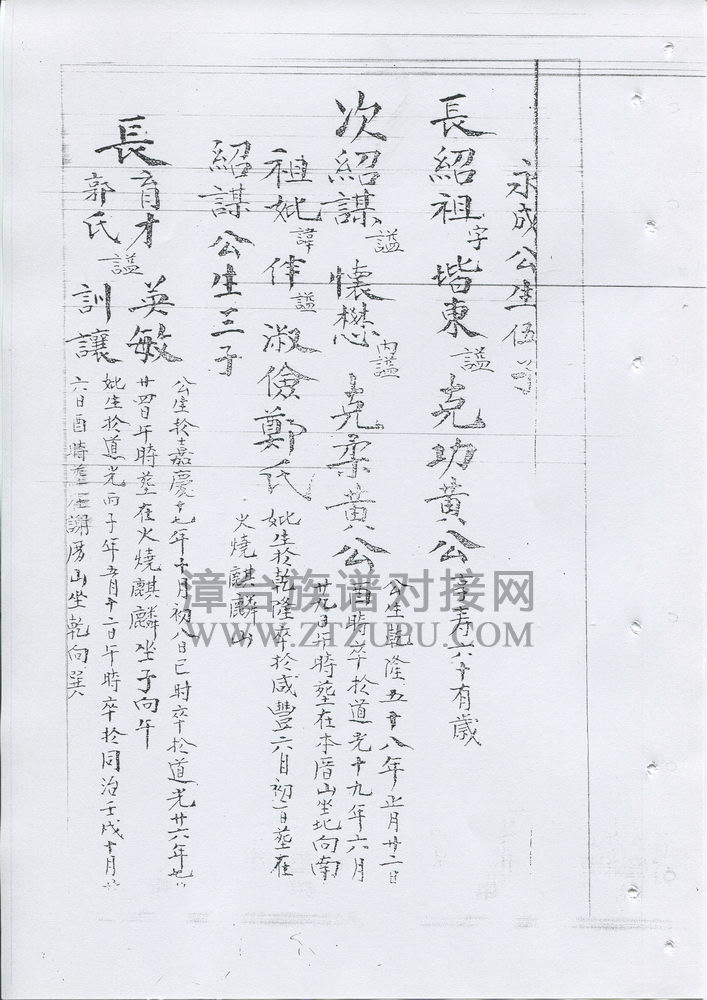 永成公生伍子
長紹祖字堦東謚克功黃公享寿六十有歲
次紹謀謚懷懋內謚克柔黃公公生乾隆五十八年正月廿二日
酉時卒於道光十九年六月
廿九日午時塟在本厝山坐北向南
祖妣諱伴謚淑儉鄭氏妣生於乾隆卒於咸豐六月初一日塟在
火燒麒麟山
紹謀公生三子
長育才英敏
郭氏謚訓讓
公生於嘉慶十七年十月初八日巳時卒於道光廿六年
廿四日午時塟在火燒麒麟坐子向午
妣生於道光丙子年五月十二日午時卒於同治壬戌十月
六日酉時塟在謝厝山坐乾向巽
漳台族谱对接网
WWW.ZTZUPU.COM